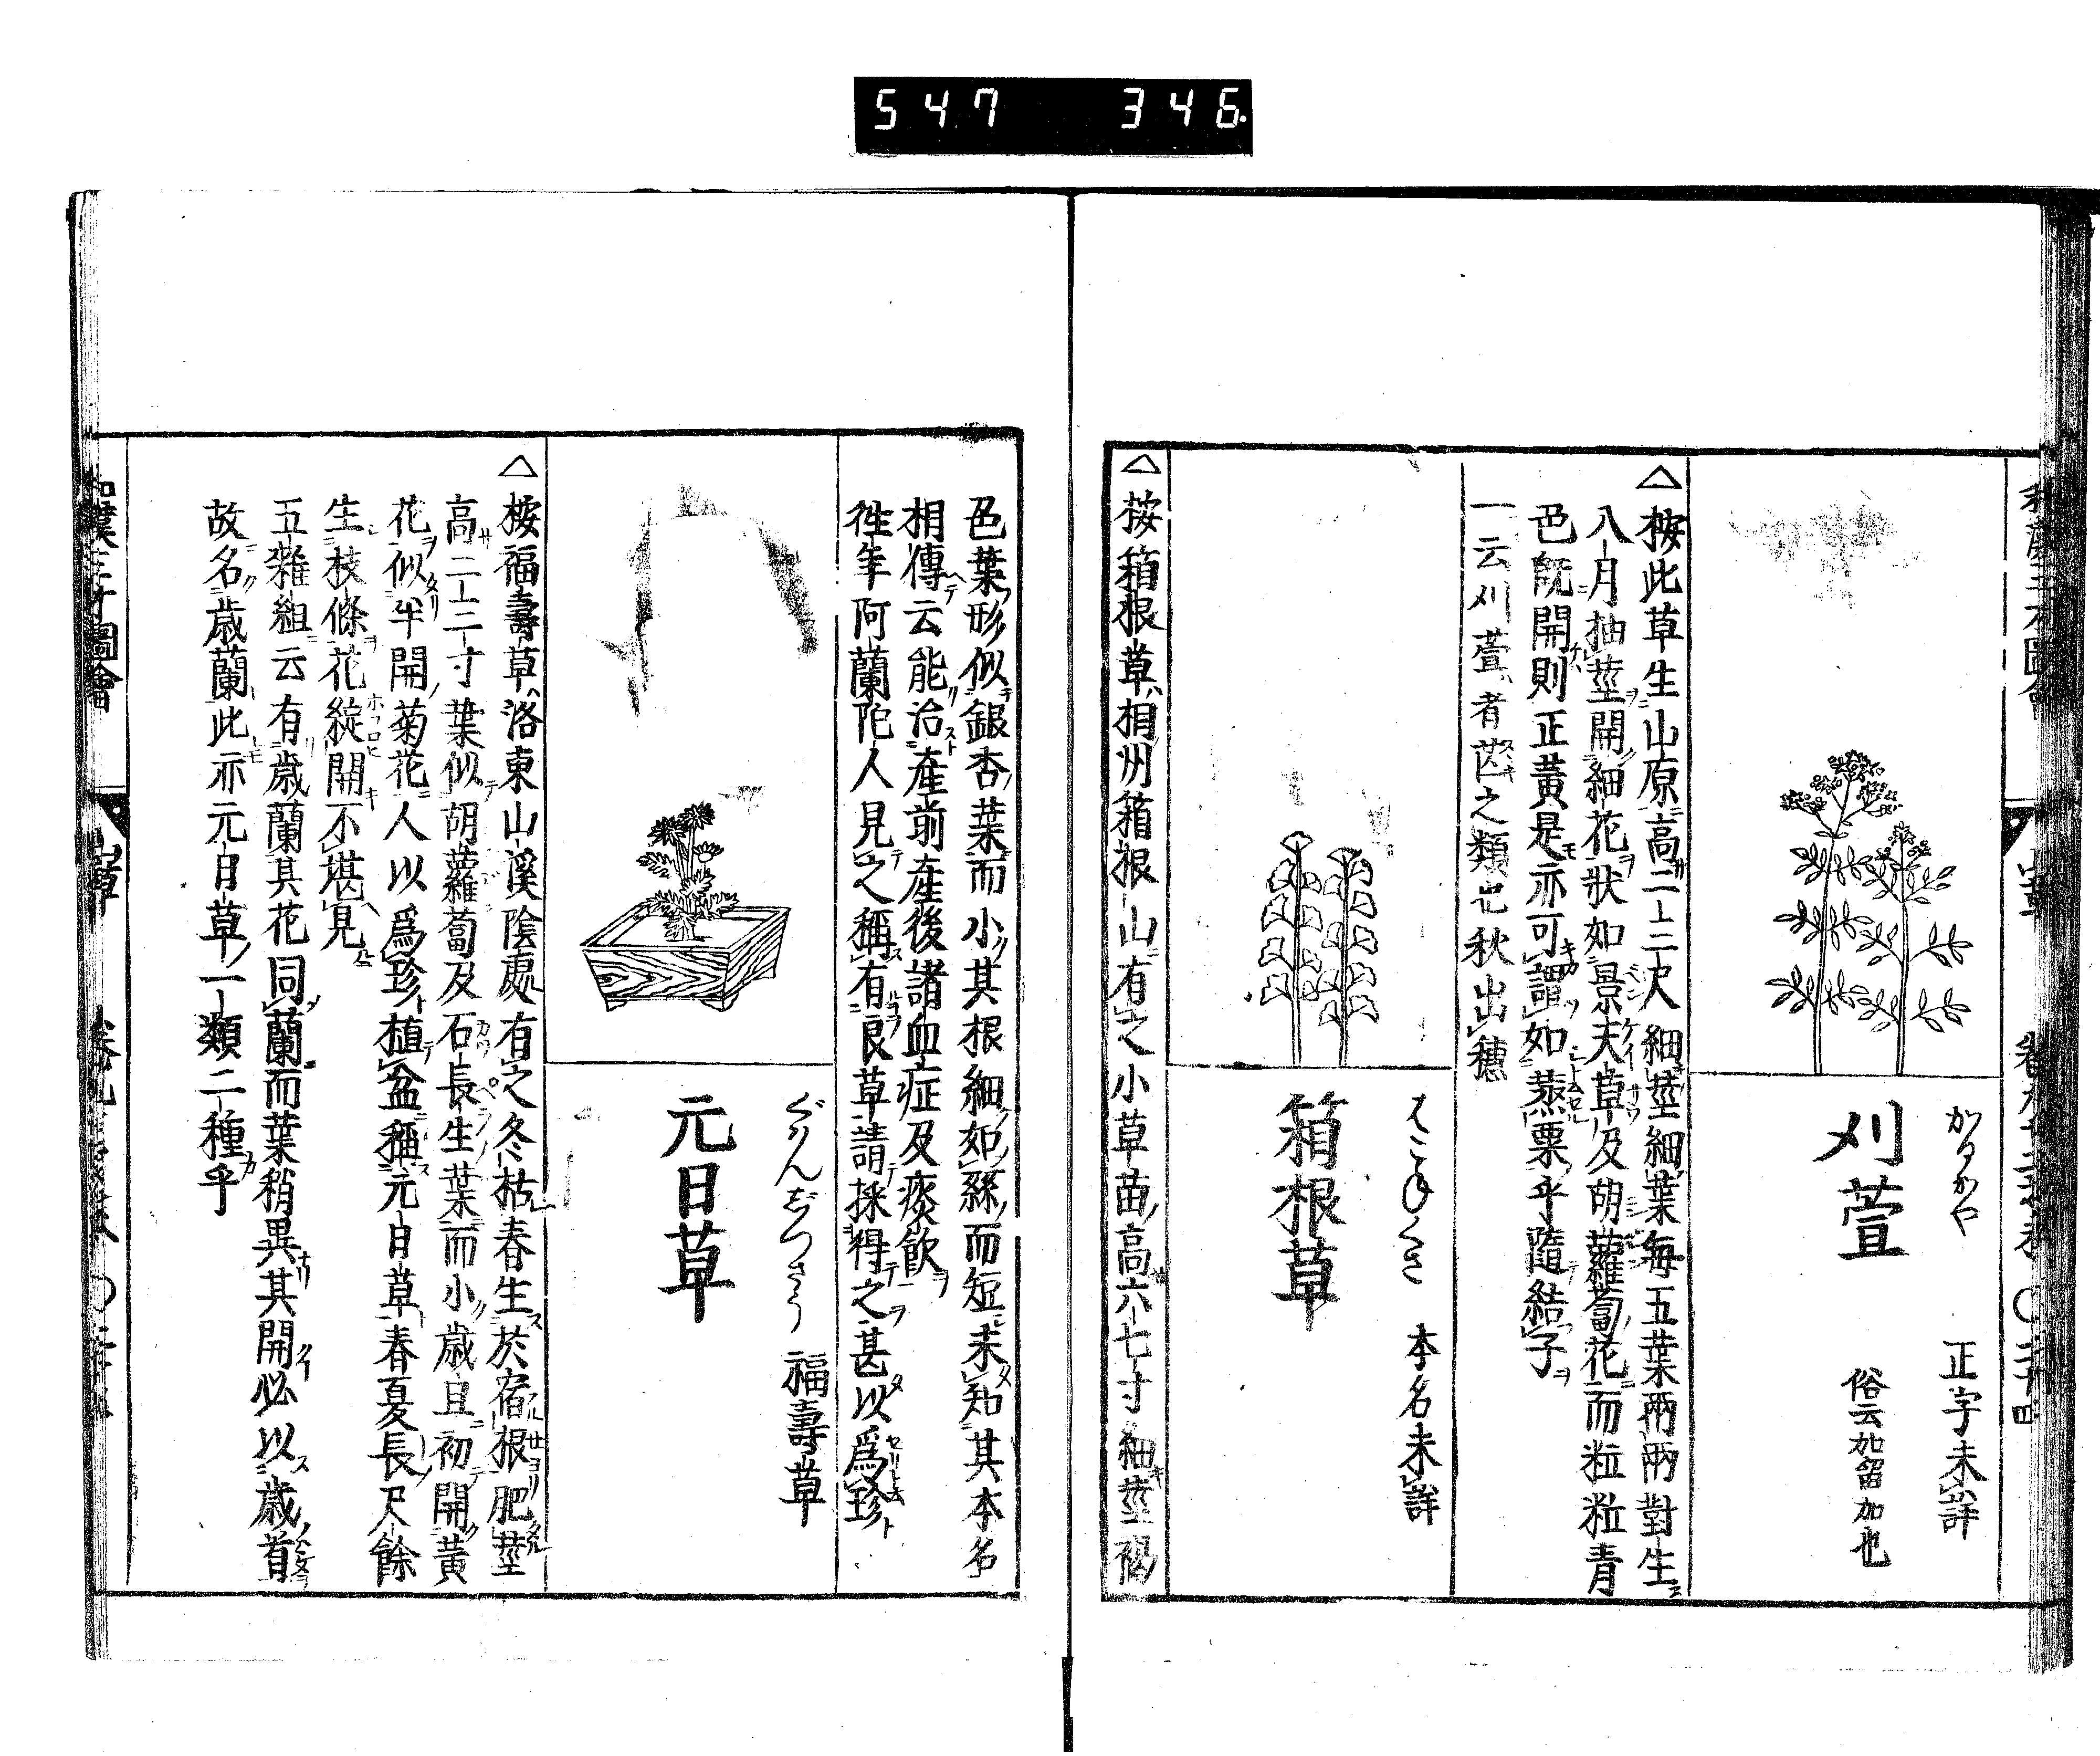 547 346
かるかや 正字未詳
刈萱 俗云加留加也
△按此草生山原高二三尺細莖細葉毎五葉兩兩對生
八月抽莖開細花狀如景天草及胡蘿蔔花而粒粒青
色既開則正黃是亦可謂如蒸粟乎隨結子
一云刈萱者芒之類也秋出穗
はこねくさ 本名未詳
箱根草
△按箱根草相州箱根山有之小草苗高六七寸細莖褐
色葉形似銀杏葉而小其根細如絲而短未知其本名
相傳云能治產前產後諸血症及痰飲
徃年阿蘭陀人見之稱有良草請採得之甚以爲珍
ぐわんじつさう 福壽草
元日草
△按福壽草洛東山溪陰處有之冬枯春生於宿根肥莖
高二三寸葉似胡蘿蔔及石長生葉而小歲且初開黃
花似半開菊花人以爲珍植盆稱元日草春夏長尺餘
生枝條花綻開不堪見
五雜組云有歲蘭其花同蘭而葉稍異其開必以歲首
故名歲蘭此亦元日草一類二種乎